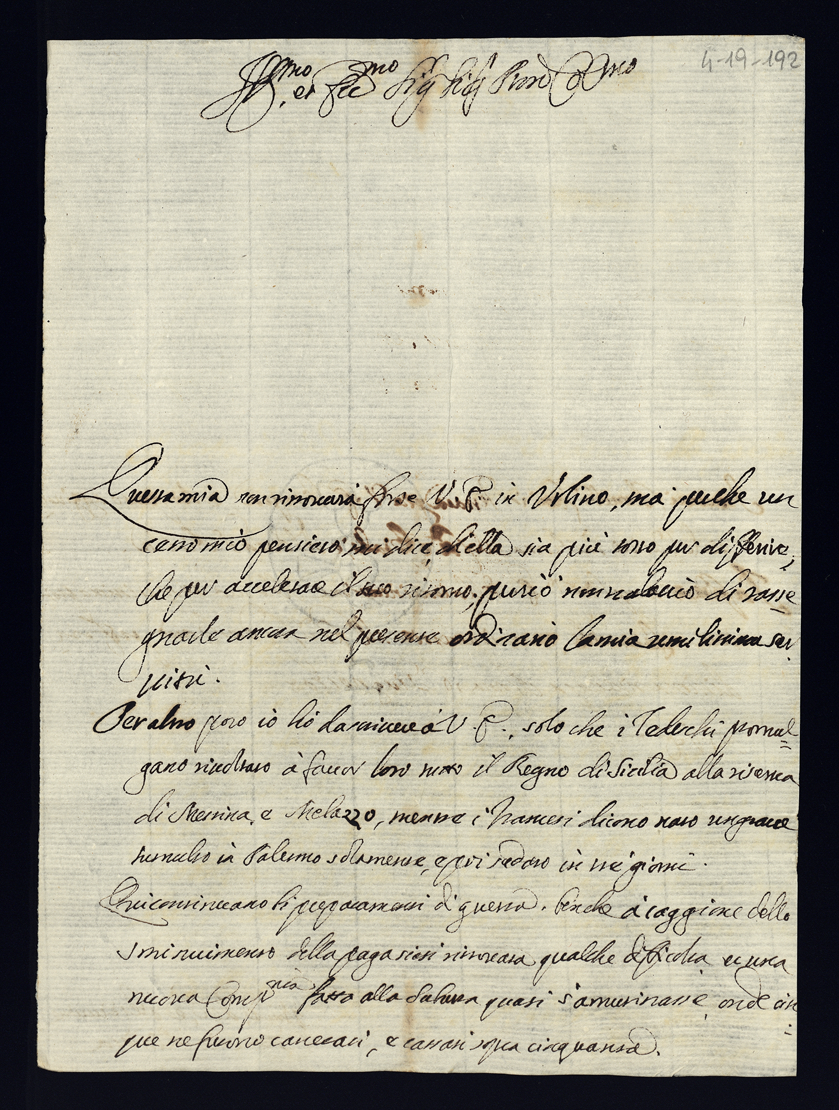 4-19-192
Ill.mo et Ecc.mo Sig.r Sig.r Pron Col.mo
Questa mia non ritrovarà forse V. E. in Urbino, ma perche un
certo mio pensiero mi dice, ch'ella sia più tosto per differire,
che per accelerare il suo ritorno, perciò non tralascio di rasse
gnarle ancor nel presente ordinario la mia umilissima ser
vitù.
Per altro poco io hò da scrivere à V. E., solo che i Tedeschi promul
gano rivoltato à favor loro tutto il Regno di Sicilia alla riserva
di Messina, e Melazzo, mentre i Francesi dicono nato un grave
tumulto in Palermo solamente, e poi sedato in tre giorni.
Qui continuano li preparamenti di guerra, benche à caggione dello
sminuimento della paga siasi ritrovata qualche difficoltà, et una
nuova Comp.nia fatta alla Salussa quasi s'amutinasse, onde cin
que ne furono carcerati, e cassati sopra cinquanta.